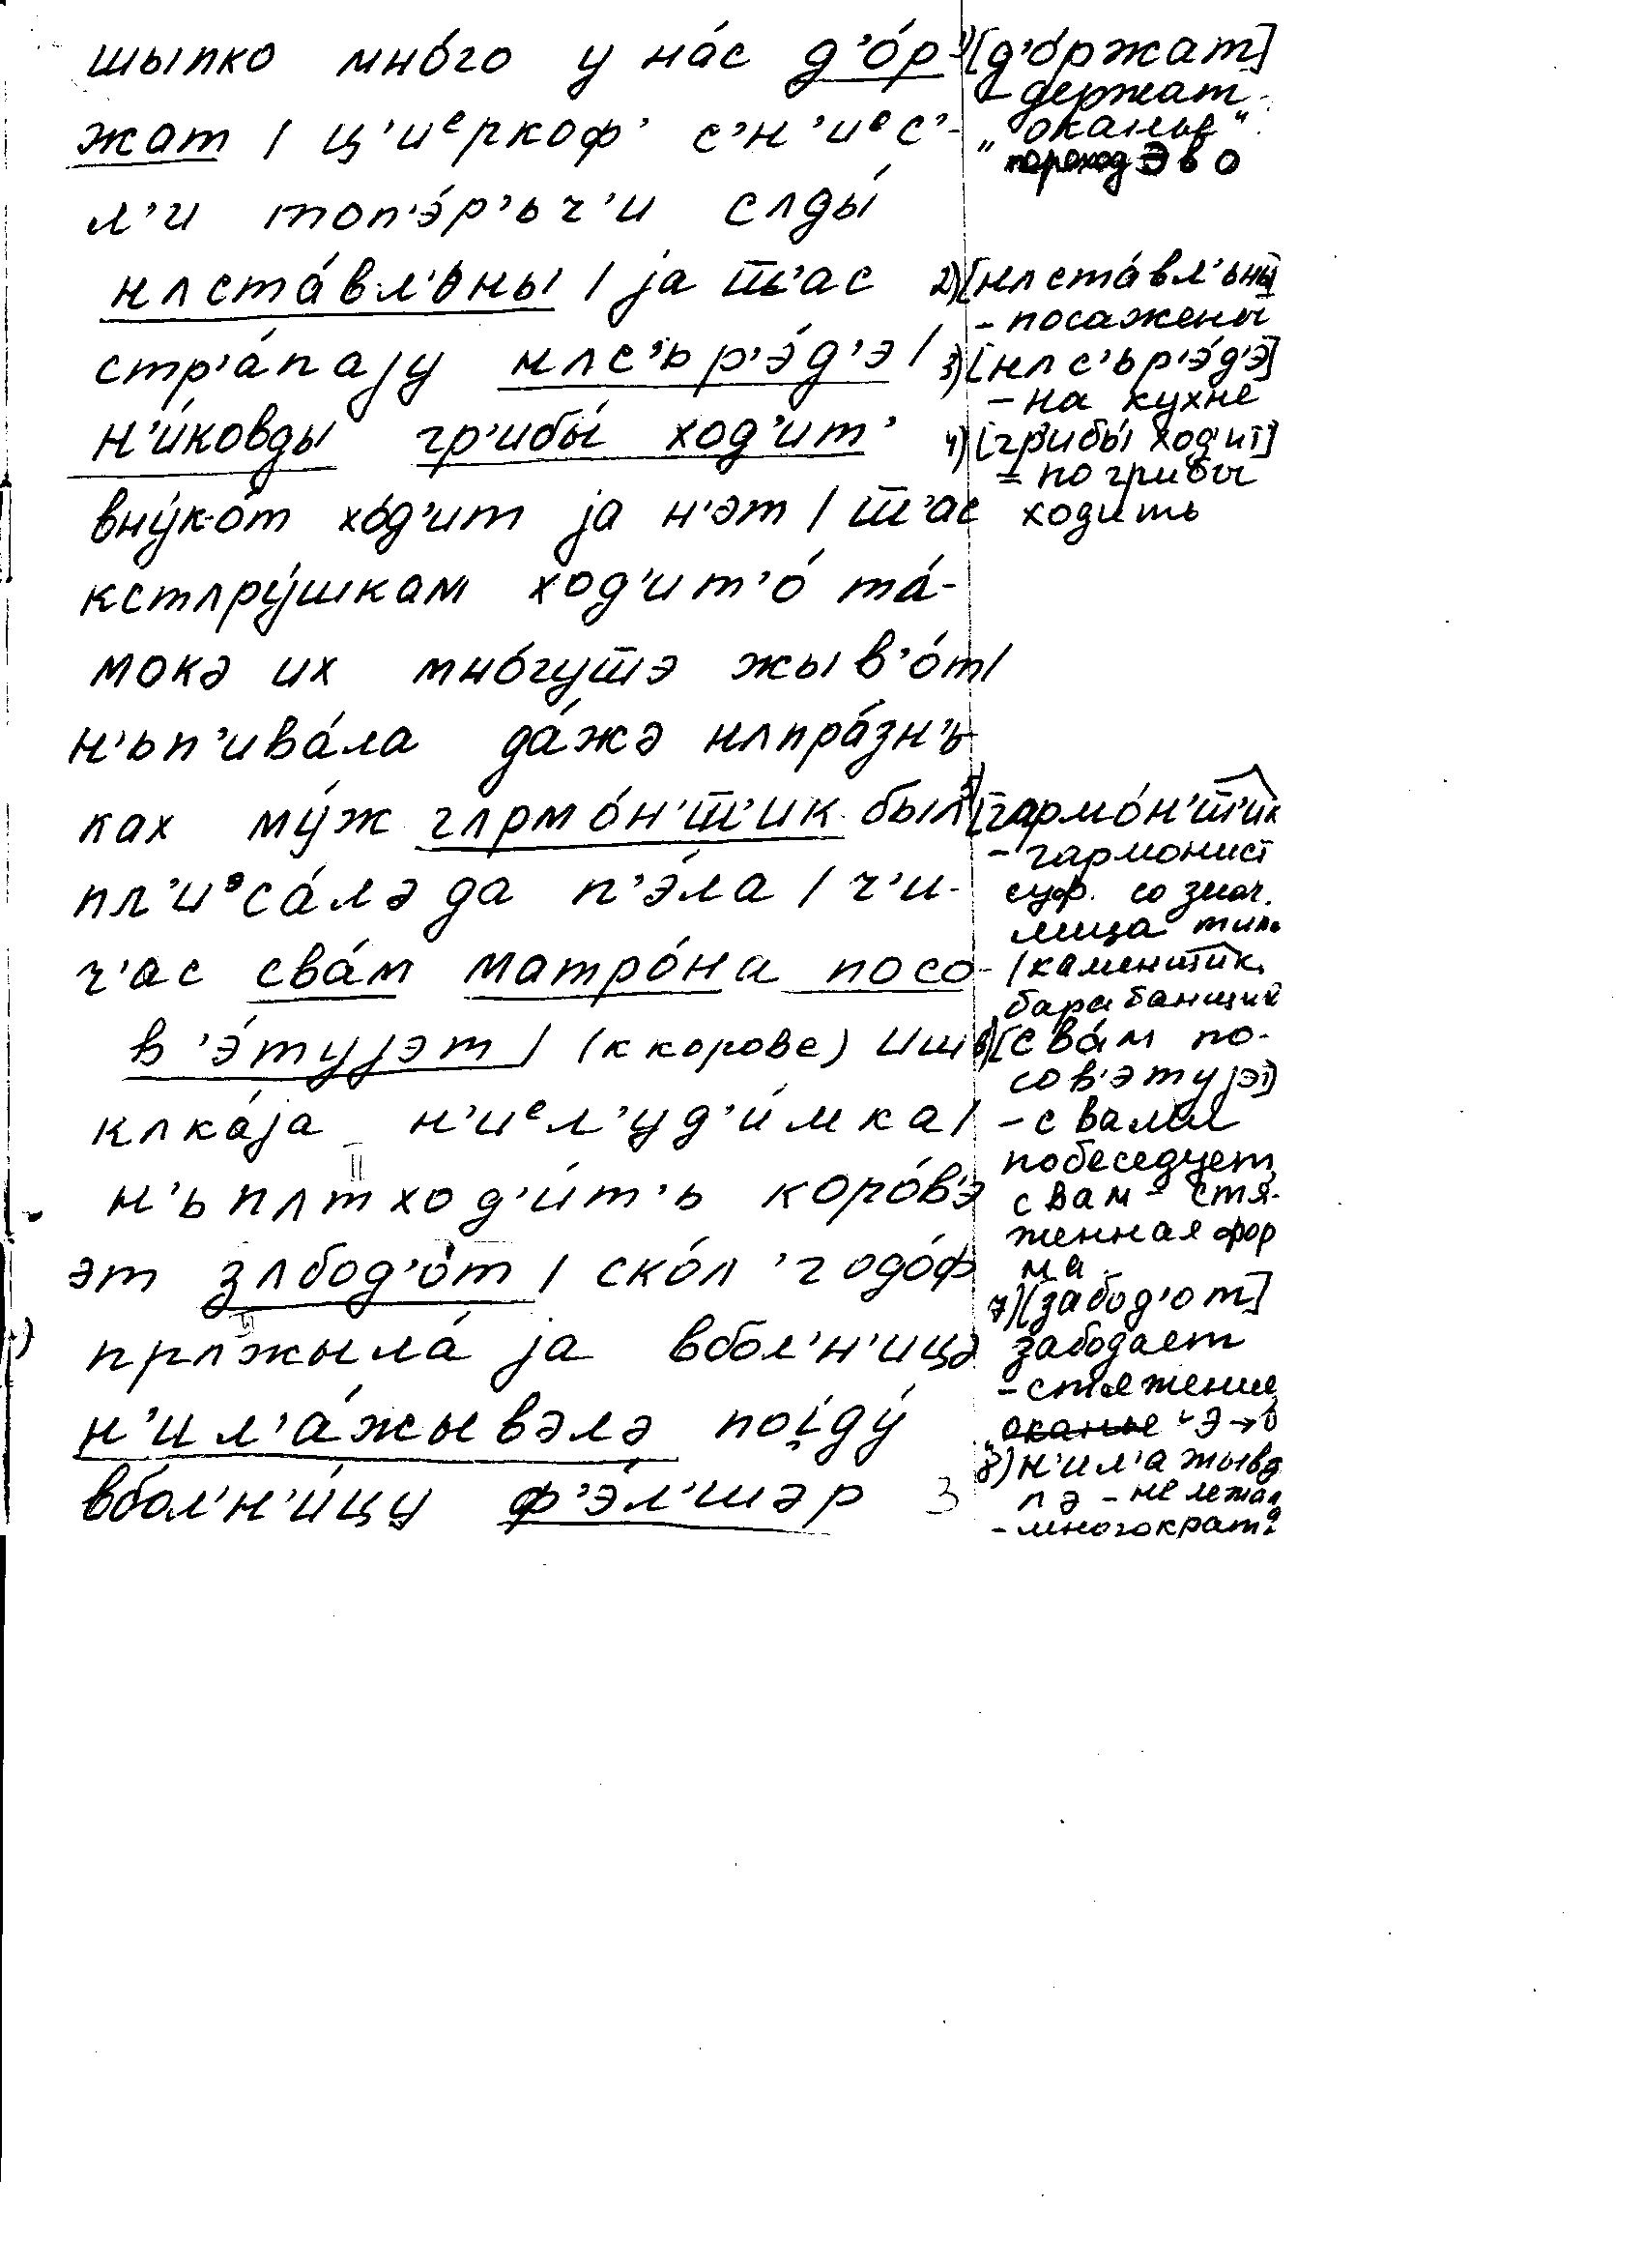 шыпко мно́го у на́с д'о́р-
жат / ц'иᵉркоф' с'н'иᵉс'-
л'и топ'э́р'ьч'и сʌды́
нʌста́вл'ьны / ја ш̅'ас
стр'а́пају нʌс'ьр'э́д'э /
н'и́ковды гр'ибы́ ход'ит'
вну́к от хо́д'ит ја н'эт / ш̅'ас
кстʌру́шкам ход'ит'о́ та́-
мокə их мно́гуш̅э жыв'о́т /
н'ьп'ива́ла да́жə нʌпра́зн'ь-
ках му́ж гʌрмо́н'ш̅'ик был
пл'иᵊса́лə да п'э́ла / ч'и-
ч'ас сва́м матро́на посо-
в'э́тујэт / (к корове) иш
кʌка́ја н'иᵉл'уд'и́мка /
н'ьпʌтход'и́т'ь коро́в'э
эт зʌбод'о́т / ско́л'годо́ф
прʌжыла́ ја вбол'н'ицə
н'ил'а́жывəлə поiду́
вбол'н'и́цу ф'э́л'шəр
1) [д'о́ржат]
– держат –
„оканье"
переход Э в О
2) [нʌста́вл'ьны]
– посажены
3) [нʌс'ьр'э́д'э]
– на кухне
4) [гр'ибы́ ход'ит]
– по грибы
ходить
5) [гармо́н'ш̅'ик
– гармонист
суф. со знач.
лица типа
/каменщик,
барабанщик
6) [сва́м по-
сов'этујэт]
– с вами
побеседует,
свам – стя-
женная фор
ма
7) [забод'от]
забодает
– стяжение,
„оканье" Э → о́
8) н'ил'ажывə
лə – не лежала
– многократ.
3